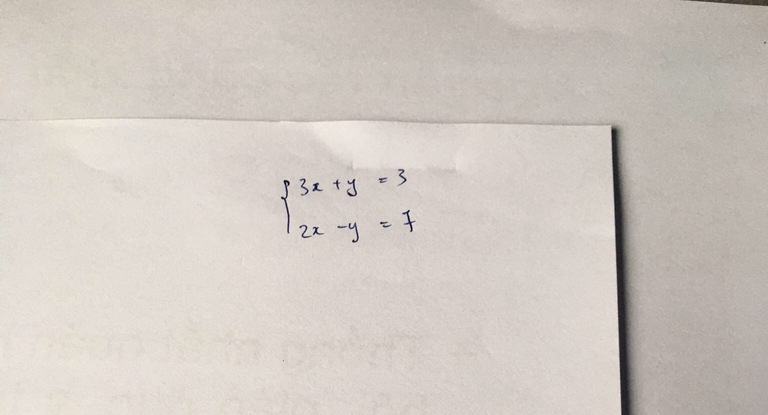 3x + y = 3
2x - y = 7